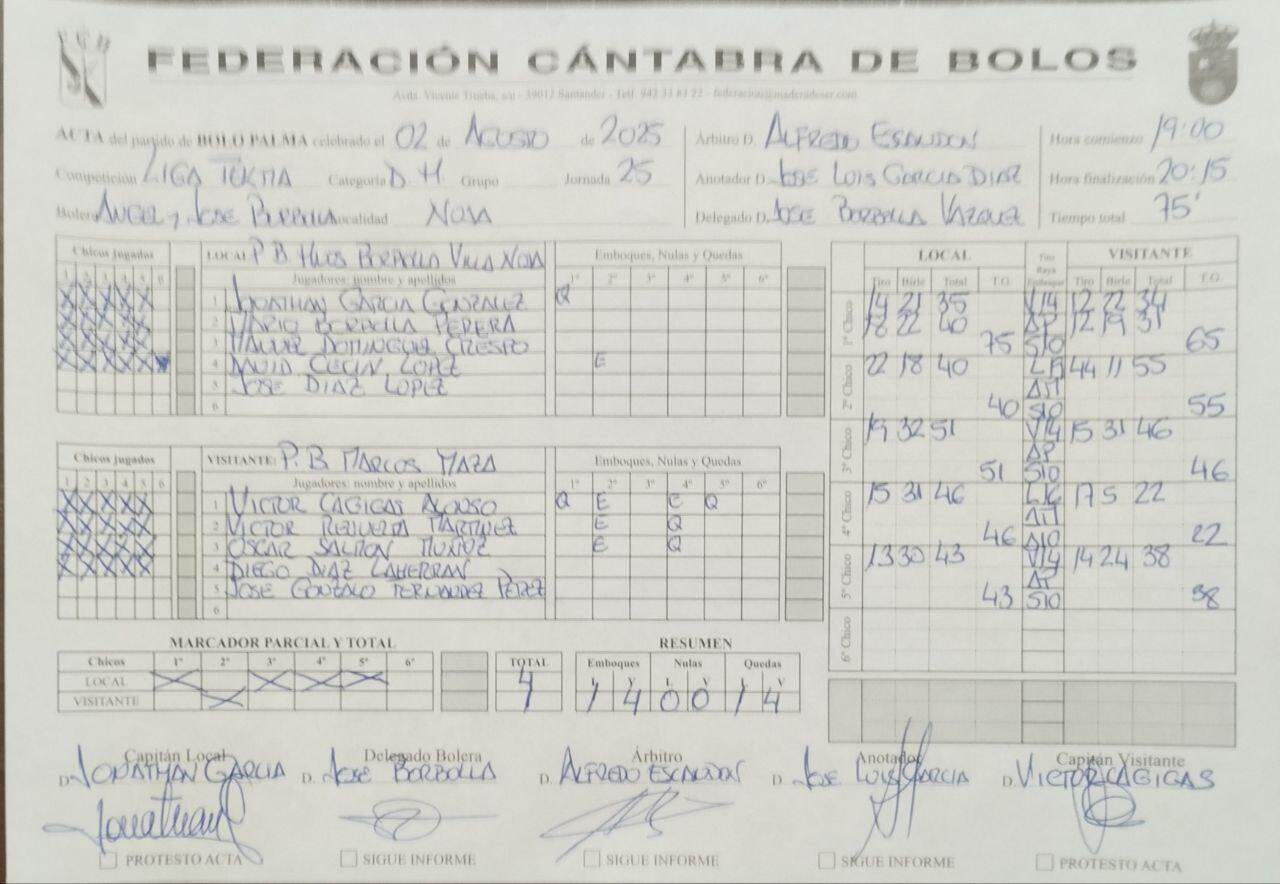 FEDERACIÓN CÁNTABRA DE BOLOS
Avda. Vicente Trueba, s/n - 39012 Santander - Telf. 942 33 83 22 -
ACTA del partido de BOLO PALMA celebrado el 02 de AGOSTO de 2025
Competición LIGA Categoría D H Grupo Jornada 25
Bolera ANGEL y JOSE BORBOLLA Localidad NOJA
Árbitro D. ALFREDO ESCANDON
Anotador D. JOSE LUIS GARCIA DIAZ
Delegado D. JOSE BORBOLLA VAZQUEZ
Hora comienzo 19:00
Hora finalización 20:15
Tiempo total 75'
Chicos jugados LOCAL P B HNOS BORBOLLA VILLA NOJA Emboques, Nulas y Quedas
1 2 3 4 5 6 Jugadores: nombre y apellidos 1º 2º 3º 4º 5º 6º
X X X X X 1 JONATHAN GARCIA GONZALEZ Q
X X X X X 2 MARIO BORBOLLA PERERA
X X X X X 3 DOMINGUEZ CRESPO
X X X X X 4 DAVID CECIN LOPEZ E
5 JOSE DIAZ LOPEZ
6
Chicos jugados VISITANTE: P. B MARCOS MAZA Emboques, Nulas y Quedas
1 2 3 4 5 6 Jugadores: nombre y apellidos 1º 2º 3º 4º 5º 6º
X X X X X 1 VICTOR CAGIGAS ALONSO Q E E Q
X X X X X 2 VICTOR REVUELTA MARTINEZ E Q
X X X X X 3 OSCAR SALMON MUÑOZ E Q
X X X X X 4 DIEGO DIAZ LAHERRAN
5 JOSE GONZALO FERNANDEZ PEREZ
6
LOCAL Tiro Raya Emboque VISITANTE
Tiro Birle Total T.O. Tiro Birle Total T.O.
1º Chico 14 21 35 V14 12 22 34
18 22 40 AP 12 19 31
75 S10 65
2º Chico 22 18 40 44 11 55
40 S10 55
3º Chico 19 32 51 V14 15 31 46
AP
51 S10 46
4º Chico 15 31 46 17 5 22
46 22
5º Chico 13 30 43 V14 14 24 38
AP
43 S10 38
6º Chico
MARCADOR PARCIAL Y TOTAL RESUMEN
Chicos 1º 2º 3º 4º 5º 6º TOTAL Emboques Nulas Quedas
LOCAL X X X X 4 L V L V L V
VISITANTE X 1 1 4 0 0 1 4
Capitán Local Delegado Bolera Árbitro Anotador Capitán Visitante
D. JONATHAN GARCIA D. JOSE BORBOLLA D. ALFREDO ESCANDON D. JOSE LUIS GARCIA D. VICTOR CAGIGAS
Jonathan
PROTESTO ACTA SIGUE INFORME SIGUE INFORME SIGUE INFORME PROTESTO ACTA